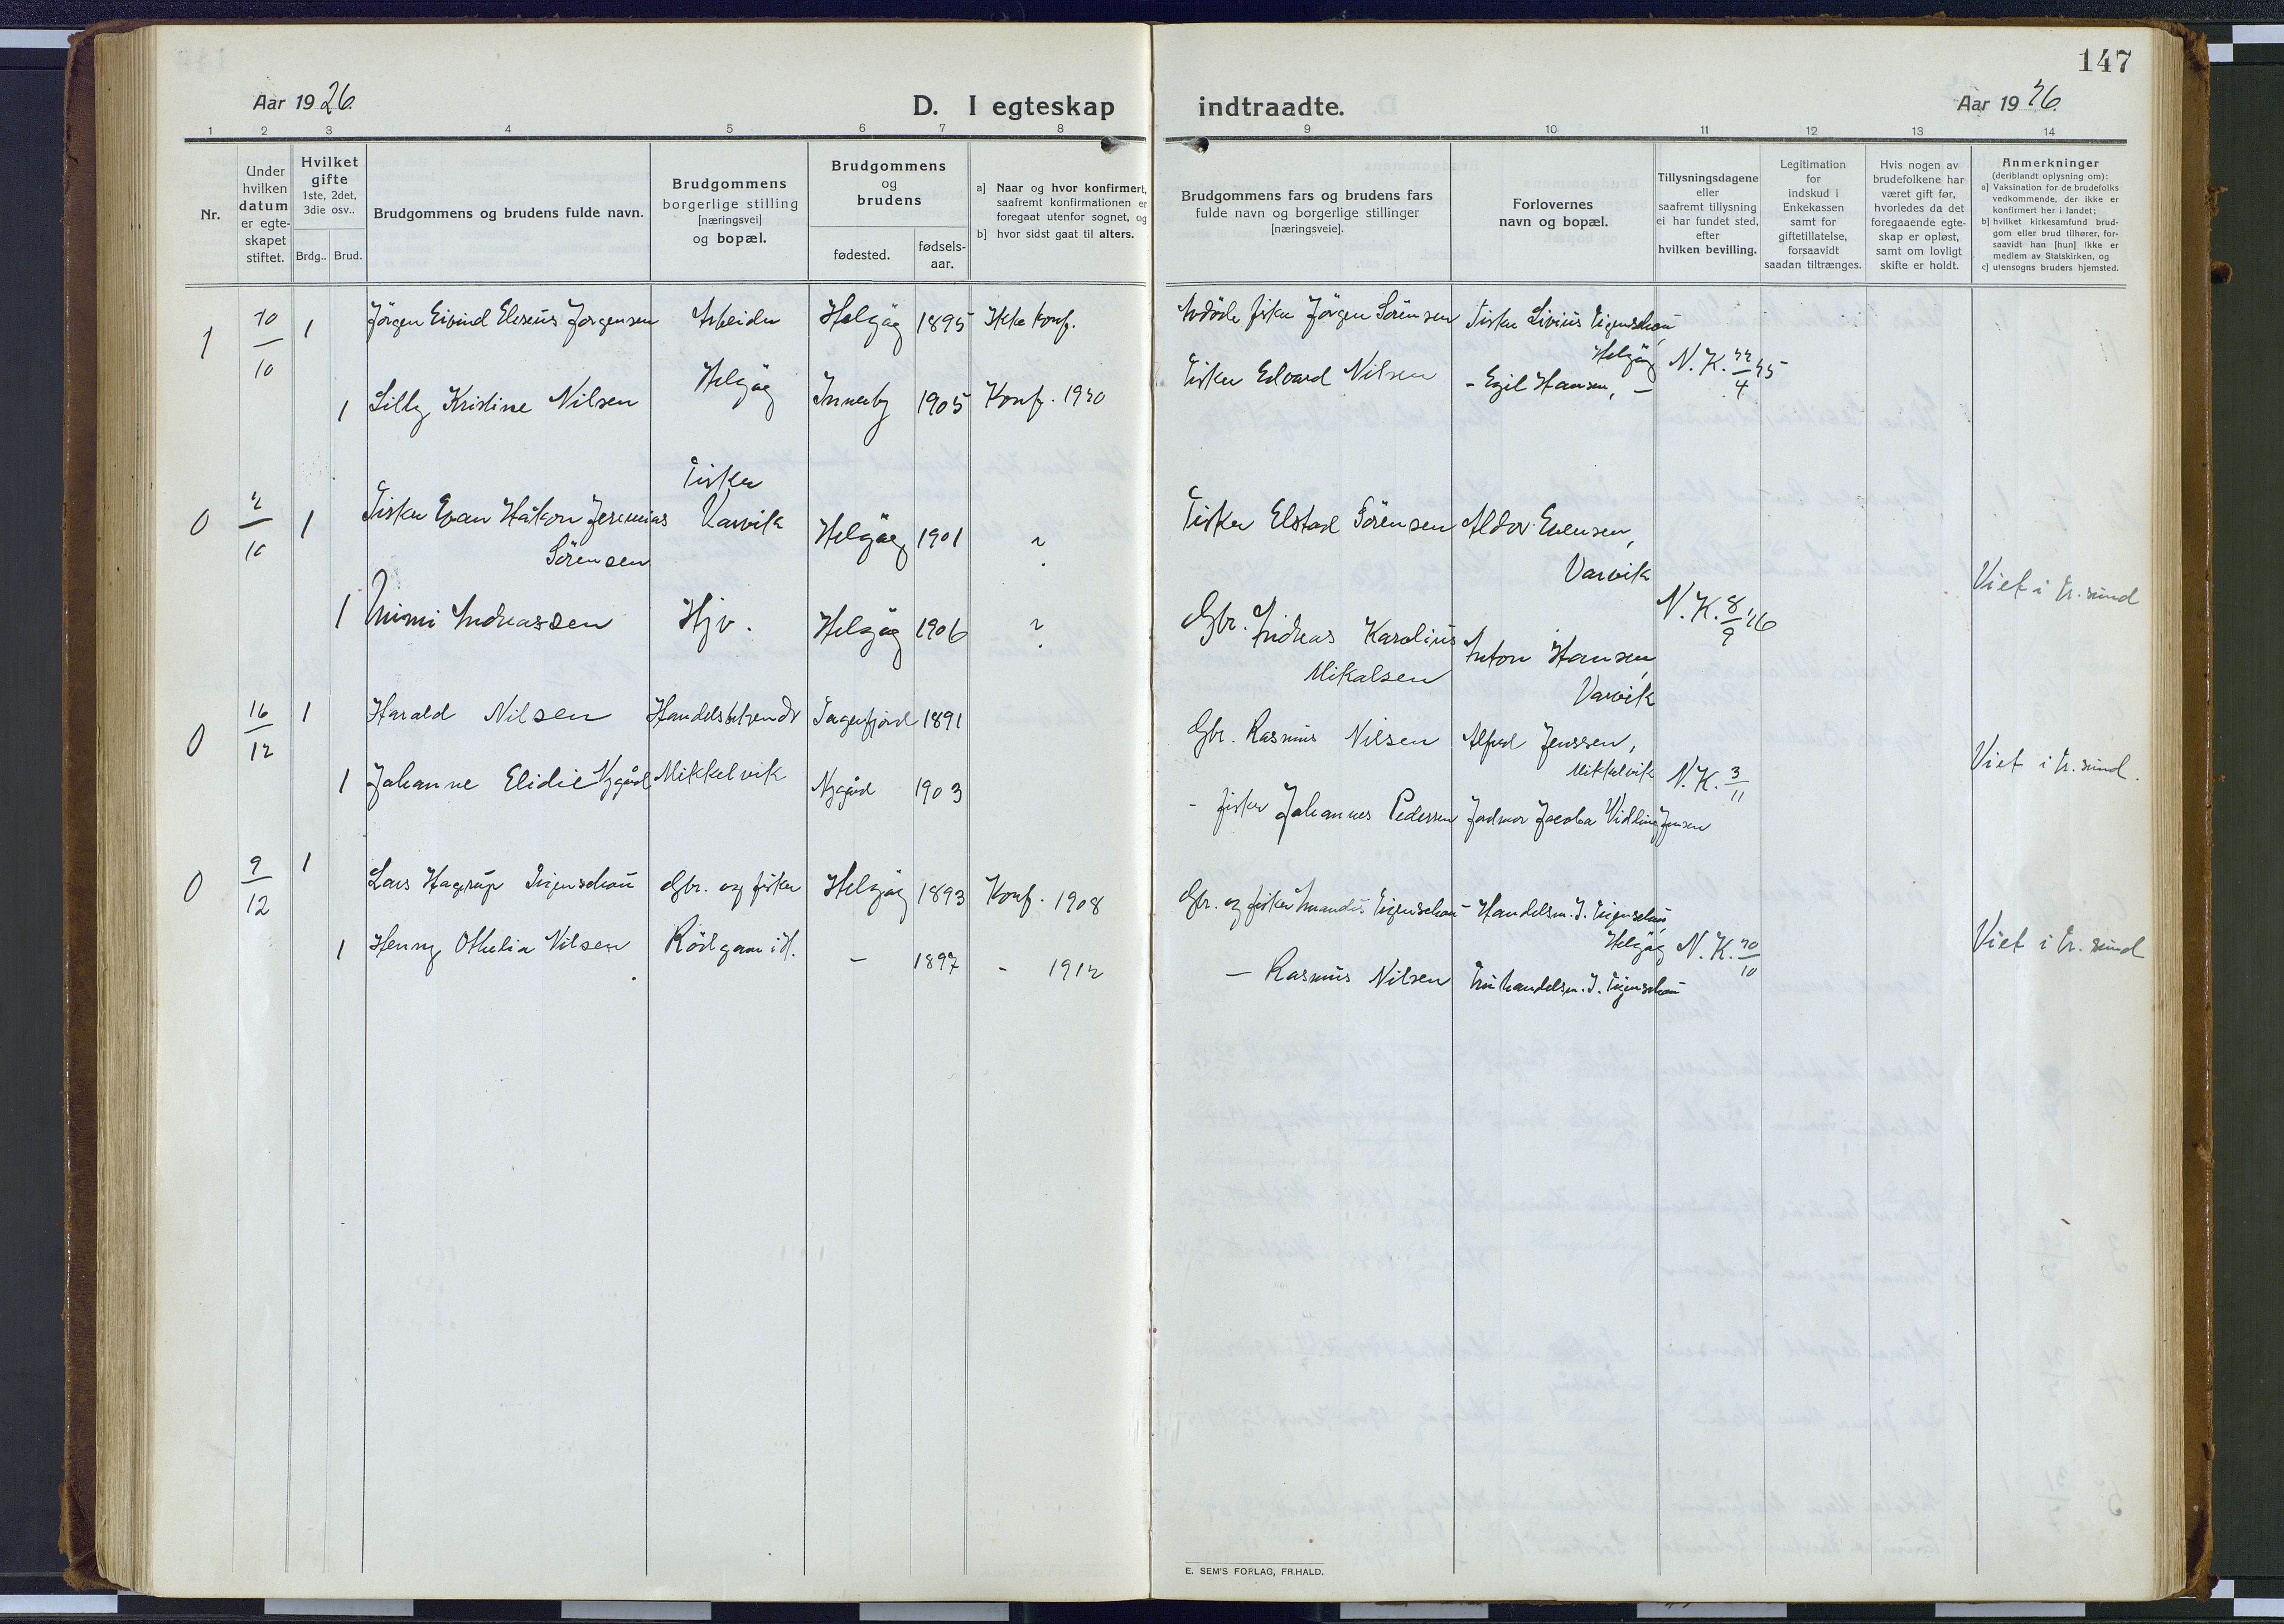 147
Aar 1926.
D. I egteskap indtraadte.
Aar 1926.
1 2 3 4 5 6 7 8 9 10 11 12 13 14
Nr.
Under
hvilken
datum
er egte-
skapet
stiftet.
Hvilket
gifte
1ste, 2det,
3die osv..
Brdg.. Brud.
Brudgommens og brudens fulde navn.
Brudgommens
borgerlige stilling
[næringsvei]
og bopæl.
Brudgommens
og
brudens
fødested.
fødsels-
aar.
a] Naar og hvor konfirmert,
saafremt konfirmationen er
foregaat utenfor sognet, og
b] hvor sidst gaat til alters.
Brudgommens fars og brudens fars
fulde navn og borgerlige stillinger
[næringsveie].
Forlovernes
navn og bopæl.
Tillysningsdagene
eller
saafremt tillysning
ei har fundet sted,
efter
hvilken bevilling.
Legitimation
for
indskud i
Enkekassen
samt for
giftetillatelse,
forsaavidt
saadan tiltrænges.
Hvis nogen av
brudefolkene har
været gift før,
hvorledes da det
foregaaende egte-
skap er opløst,
samt om lovligt
skifte er holdt.
Anmerkninger
(deriblandt oplysning om):
a] Vaksination for de brudefolks
vedkommende, der ikke er
konfirmert her i landet;
b] hvilket kirkesamfund brud-
gom eller brud tilhører, for-
saavidt han [hun] ikke er
medlem av Statskirken, og
c] utensogns bruders hjemsted.
1 20/10 1 Jörgen Eivind Eleseus Jörgensen Arbeider Helgöy 1895 Ikke konf. Avdöde fisker Jörgen Sörensen Fisker Livius Eigenschou
Helgöy Helgöy N. K. 22/4 25
1 Lilly Kristine Nilsen Innerby 1905 Konf. 1920 Fisker Edvard Nilsen - Egil Hansen, -
Fisker
0 2/10 1 Fisker Evan Håkon Jeremias Varvik Helgöy 1901 ? Fisker Elstad Sörensen Aldor Evensen,
Sörensen Varvik
1 Mimi Andreassen Hjv. Helgöy 1906 ? Gbr. Andreas Karolius Anton Hansen, N. K. 8/9 26 Viet i sund
Mikalsen Varvik
0 16/12 1 Harald Nilsen Handelsbetjendt 1891 Gbr. Rasmus Nilsen Alfred Jenssen,
Mikkelvik N. K. 3/11 Viet i sund.
1 Johanne Elidie Nygård Mikkelvik Nygård 1903 - fisker Johannes Pedersen Jordmor Jacoba Jensen
0 9/12 1 Lars Hagerup Eigenschou Gbr. og fisker Helgöy 1893 Konf. 1908 Gbr. og fisker Eigenschou Handelsm. J. Eigenschou,
Helgöy N. K. 20/10 Viet i sund
1 Henny Othelia Nilsen i H. - 1897 - 1912 - Rasmus Nilsen Fru handelsm. J. Eigenschou
E. SEM'S FORLAG, FR.HALD.